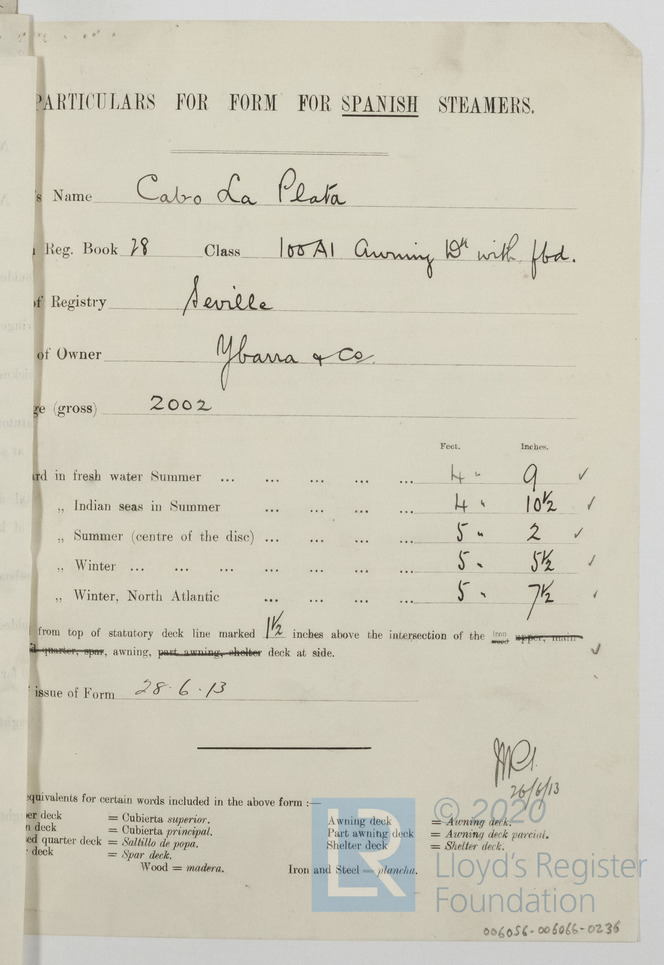 PARTICULARS FOR FORM FOR SPANISH STEAMERS.
's Name Cabo La Plata
Reg. Book 28 Class 100A1 Awning Dk with fbd.
of Registry Seville
of Owner Ybarra & Co.
ge (gross) 2002
Feet. Inches.
rd in fresh water Summer ... ... ... ... ... 4 " 9 ✓
„ Indian seas in Summer ... ... ... ... 4 " 10½ ✓
„ Summer (centre of the disc) ... ... ... ... 5 " 2 ✓
„ Winter ... ... ... ... ... ... ... 5 " 5½ ✓
„ Winter, North Atlantic ... ... ... ... 5 " 7½ ✓
from top of statutory deck line marked 1½ inches above the intersection of the iron wood upper, main
quarter, spar, awning, part awning, shelter deck at side. ✓
issue of Form 28.6.13
26/6/13
equivalents for certain words included in the above form :—
er deck = Cubierta superior. Awning deck = Awning deck.
n deck = Cubierta principal. Part awning deck = Awning deck parcial.
ed quarter deck = Saltillo de popa. Shelter deck = Shelter deck.
deck = Spar deck.
Wood = madera. Iron and Steel = plancha.
LR © 2020
Lloyd's Register
Foundation
006056-006066-0236